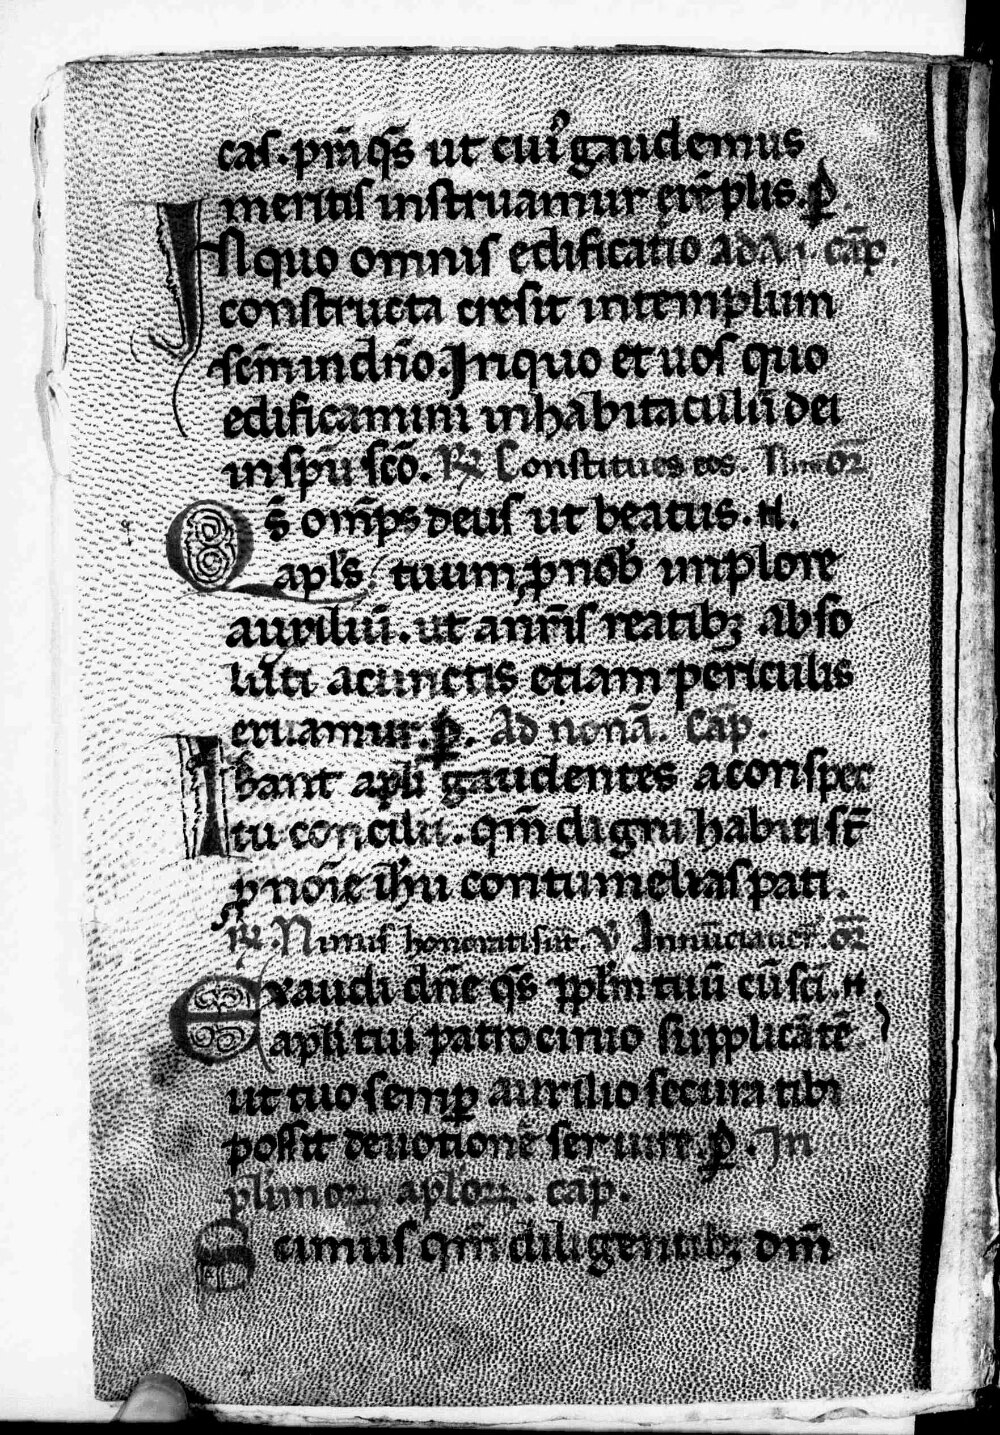 cas. p̄m q̄s ut cui᷒ gaudemus
meritis instruamur exēplis. p̄
In quo omnis edificatio Ad vi. cāp.
constructa cresit in templum
sc̄m in dn̄o. In quo et uos quo
edificamini in habitaculū dei
in sp̄u sc̄o. R̷ Constitues eos. Nim or̄
Qs̄ om̄ps deus ut beatus .N.
apl̄s tuum p nob̄ implore
auxiliū. ut a nr̄is reatibꝫ abso
luti a cunctis etiam periculis
eruamur. p̄. Ad nonā. Cāp.
Ibant apl̄i gaudentes a conspec
tu concilii. qm̄ digni habiti st̄
p noīe ih̄u contumelias pati.
R̷. Nimis honorati sūt. V̷ Annūciauer̄. or̄
Exaudi dn̄e q̄s ppl̄m tuū cū sc̄i .N.
apl̄i tui patrocinio supplicātē
ut tuo semꝑ auxilio secura tibi
possit deuotione seruire. p̄. In
pl̄imoꝝ apl̄oꝝ. cāp.
Scimus qm̄ diligentibꝫ dm̄